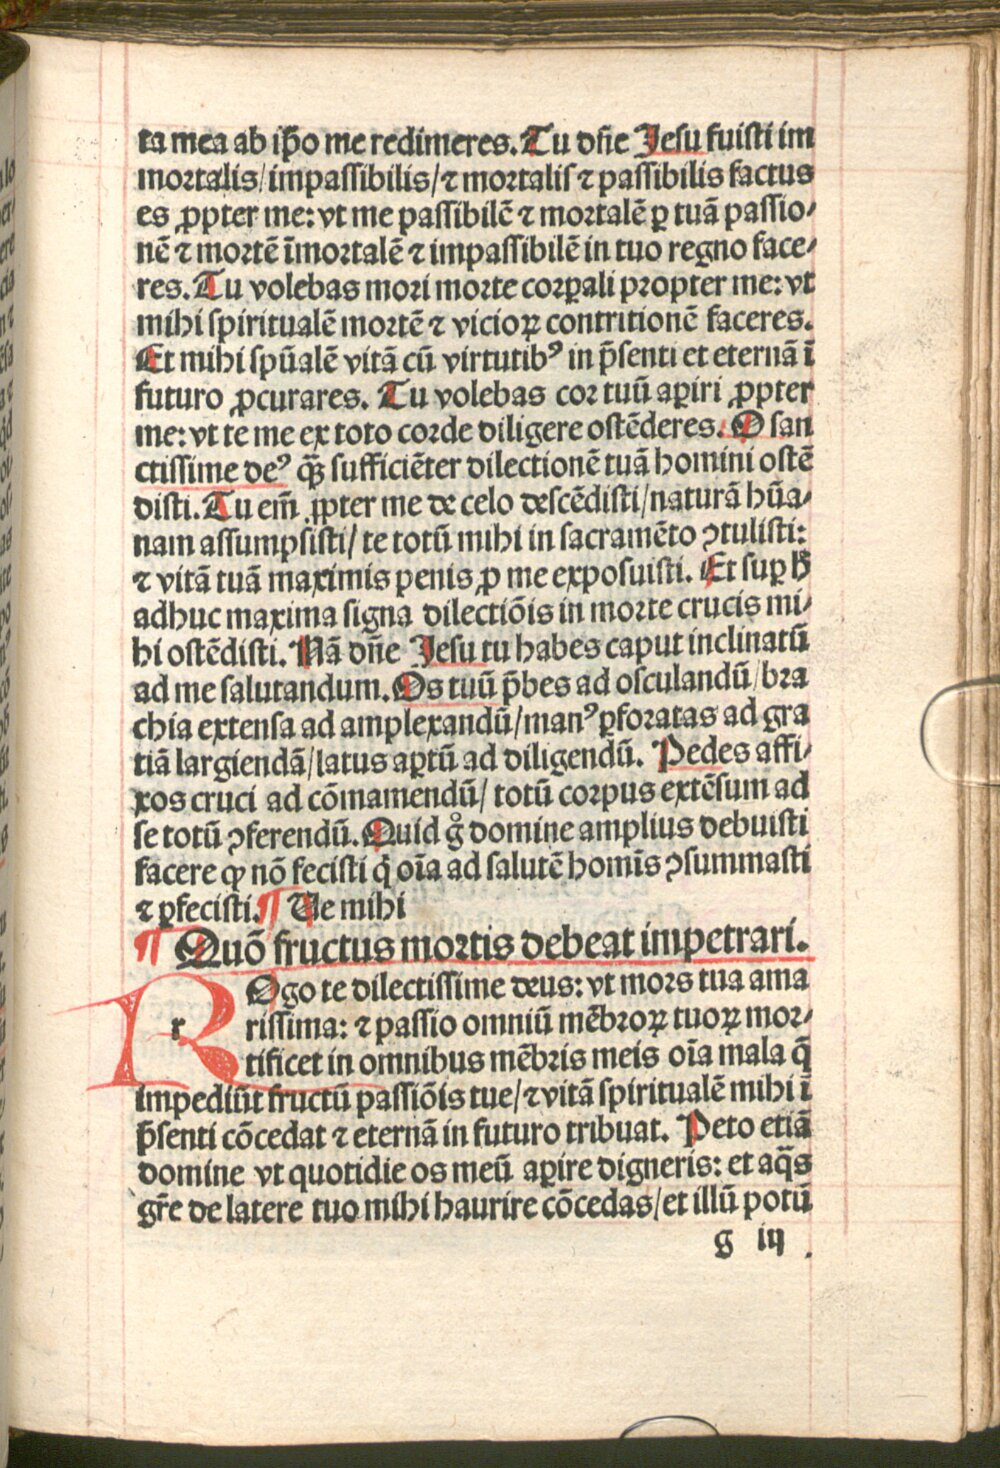 ta mea ab ip̄o me redimeres. Tu dn̄e Jesu fuisti im
mortalis/impassibilis/⁊ mortalis ⁊ passibilis factus
es ꝓpter me: vt me passibilē ⁊ mortalē ꝑ tuā passio⸗
nē ⁊ mortē īmortalē ⁊ impassibilē in tuo regno face⸗
res. Tu volebas mori morte corꝑali propter me: vt
mihi spiritualē mortē ⁊ vicioꝝ contritionē faceres.
Et mihi spūalē vitā cū virtutibꝰ in p̄senti et eternā ī
futuro ꝓcurares. Tu volebas cor tuū aꝑiri ꝓpter
me: vt te me ex toto corde diligere ostēderes. O san
ctissime deꝰ qꝫ̄ sufficiēter dilectionē tuā homini ostē
disti. Tu em̄ ꝓpter me de celo descēdisti/naturā hūa⸗
nam assumpsisti/ te totū mihi in sacramēto ꝯtulisti:
⁊ vitā tuā maximis penis ꝓ me exposuisti. Et suꝑ h̄
adhuc maxima signa dilectiōis in morte crucis mi⸗
hi ostēdisti. Nā dn̄e Jesu tu habes caput inclinatū
ad me salutandum. Os tuū p̄bes ad osculandū/bra
chia extensa ad amplexandū/manꝰ ꝑforatas ad gra
tiā largiendā/latus aꝑtū ad diligendū. Pedes affi⸗
xos cruci ad cōmamendū/ totū corpus extēsum ad
se totū ꝯferendū. Quid gͦ domine amplius debuisti
facere ꝙ nō fecisti q̇ oīa ad salutē homīs ꝯsummasti
⁊ ꝑfecisti. ¶ Ue mihi
¶ Quō fructus mortis debeat impetrari.
r ROgo te dilectissime deus: vt mors tua ama
rissima: ⁊ passio omniū mēbroꝝ tuoꝝ mor⸗
tificet in omnibus mēbris meis oīa mala q̄
impediūt fructū passiōis tue/⁊ vitā spiritualē mihi ī
p̄senti cōcedat ⁊ eternā in futuro tribuat. Peto etiā
domine vt quotidie os meū aꝑire digneris: et aq̄s
gr̄e de latere tuo mihi haurire cōcedas/et illū potū
g iij